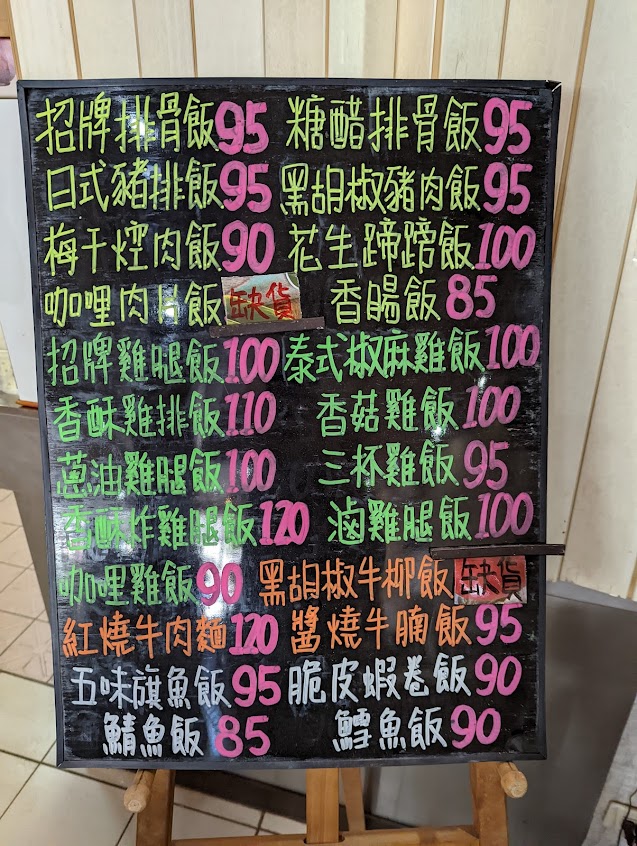 招牌排骨飯95 糖醋排骨飯95
日式豬排飯95 黑胡椒豬肉飯95
梅干焢肉飯90 花生蹄膀飯100
咖哩肉片飯 缺貨 香腸飯85
招牌雞腿飯100 泰式椒麻雞飯100
香酥雞排飯110 香菇雞飯100
蔥油雞腿飯100 三杯雞飯95
香酥炸雞腿飯120 滷雞腿飯100
咖哩雞飯90 黑胡椒牛柳飯 缺貨
紅燒牛肉麵120 醬燒牛腩飯95
五味旗魚飯95 脆皮蝦卷飯90
鯖魚飯85 鱈魚飯90